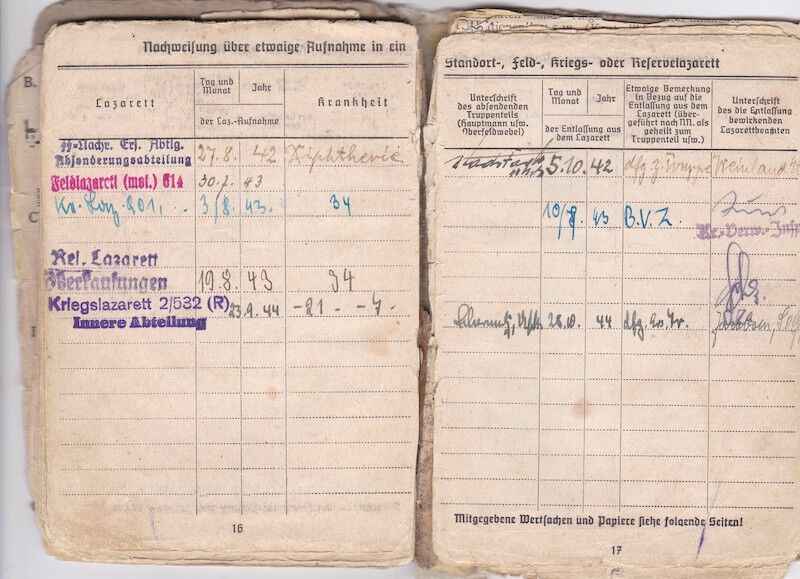 Nachweisung über etwaige Aufnahme in ein
Lazarett
Tag und Monat
Jahr
der Laz.-Aufnahme
Krankheit
ᛋᛋ-Nachr. Ers. Abtlg.
Absonderungsabteilung 27.8. 42 Diphtherie
Feldlazarett (mot.) 614 30.7. 43
Kr. Laz. 201, 3/8. 43. 34
Res. Lazarett
Oberkaufungen 19.8. 43 34
Kriegslazarett 2/532 (R) 23.9. 44 -21- -7-
Innere Abteilung
16
Standort-, Feld-, Kriegs- oder Reservelazarett
Unterschrift des absendenden Truppenteils (Hauptmann usw. Oberfeldwebel)
Tag und Monat
Jahr
der Entlassung aus dem Lazarett
Etwaige Bemerkung in Bezug auf die Entlassung aus dem Lazarett (übergeführt nach NN. als geheilt zum Truppenteil usw.)
Unterschrift des die Entlassung bewirkenden Lazarettbeamten
5.10. 42 dfg. z. Truppe
10/8. 43 B.V.Z.
Kr.-Verw.-Insp
28.10. 44
Mitgegebene Wertsachen und Papiere siehe folgende Seiten!
17